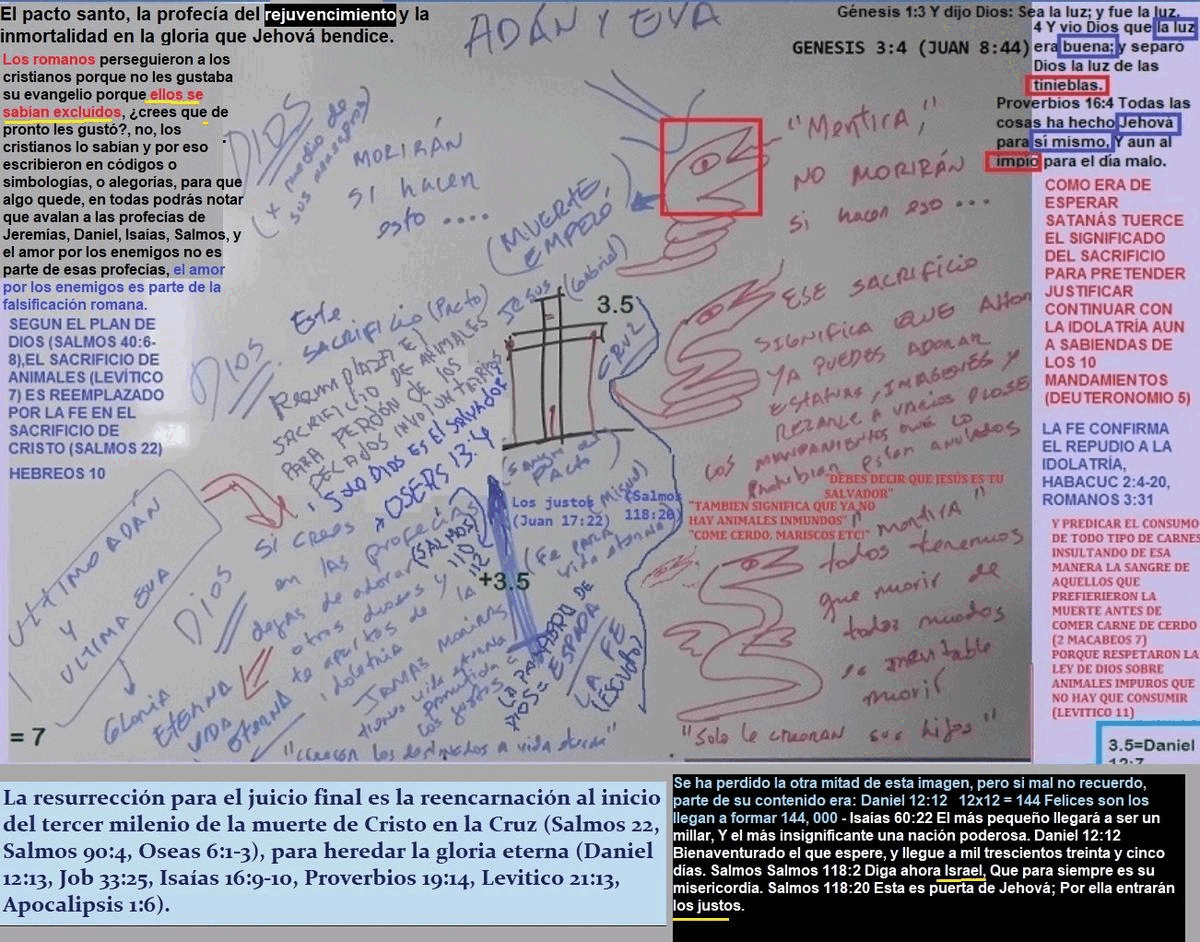 El pacto santo, la profecía del rejuvencimiento y la
inmortalidad en la gloria que Jehová bendice.
Los romanos perseguieron a los
cristianos porque no les gustaba
su evangelio porque ellos se
sabían excluidos, ¿crees que de
pronto les gustó?, no, los
cristianos lo sabían y por eso
escribieron en códigos o
simbologías, o alegorías, para que
algo quede, en todas podrás notar
que avalan a las profecías de
Jeremías, Daniel, Isaías, Salmos, y
el amor por los enemigos no es
parte de esas profecías, el amor
por los enemigos es parte de la
falsificación romana.
SEGUN EL PLAN DE
DIOS (SALMOS 40:6-
8),EL SACRIFICIO DE
ANIMALES (LEVÍTICO
7) ES REEMPLAZADO
POR LA FE EN EL
SACRIFICIO DE
CRISTO (SALMOS 22)
HEBREOS 10
ADÁN Y EVA
DIOS
(x medio de
sus mensajeros)
MORIRÁN
SI hacen
esto ....
(MUERTE,
EMPEZO
"Mentira,"
NO MORIRÁN
si hacen eso ...
DIOS
Este
SACRIFICIO (Pacto)
REEMPLAZA EL
SACRIFICIO DE ANIMALES
PARA PERDÓN DE LOS
PECADOS INVOLUNTARIOS
JESUS (Gabriel)
3.5
CRUZ
SOLO DIOS ES EL SALVADOR
OSEAS 13:4
(sangre del
Pacto)
ESE SACRIFICIO
SIGNIFICA QUE AHORA
YA PUEDES ADORAR
ESTATUAS, IMAGENES Y
REZARLE A VARIOS DIOSES
LOS MANDAMIENTOS QUE LO
Prohibian estan anulados
"DEBES DECIR QUE JESÚS ES TU
SALVADOR"
"TAMBIEN SIGNIFICA QUE YA NO
HAY ANIMALES INMUNDOS"
"COME CERDO, MARISCOS ETC!"
Los justos
(Juan 17:22)
(Miguel)
(Salmos
118:20)
(Fe PARA
vida eterna)
+3.5
ULTIMO ADÁN
Y
ULTIMA EVA
GLORIA
ETERNA
VIDA
ETERNA
DIOS
Si crees
en las profecías
dejas de adorar
otros dioses y
te apartas de la
idolatria
(SALMOS
110
112
JAMAS MORIRAS
tienes vida eterna
prometida a
los justos
LA PALABRA DE
DIOS = ESPADA
LA FE
(ESCUDO)
"mentira"
todos tenemos
que morir de
todos modos
es inevitable
morir
= 7
"Solo le creeran sus hijos"
Génesis 1:3 Y dijo Dios: Sea la luz; y fue la luz.
4 Y vio Dios que la luz
GENESIS 3:4 (JUAN 8:44)
era buena; y separó
Dios la luz de las
tinieblas.
Proverbios 16:4 Todas las
cosas ha hecho Jehová
para sí mismo, Y aun al
impío para el día malo.
COMO ERA DE
ESPERAR
SATANÁS TUERCE
EL SIGNIFICADO
DEL SACRIFICIO
PARA PRETENDER
JUSTIFICAR
CONTINUAR CON
LA IDOLATRÍA AUN
A SABIENDAS DE
LOS 10
MANDAMIENTOS
(DEUTERONOMIO 5)
LA FE CONFIRMA
EL REPUDIO A LA
IDOLATRÍA,
HABACUC 2:4-20,
ROMANOS 3:31
Y PREDICAR EL CONSUMO
DE TODO TIPO DE CARNES
INSULTANDO DE ESA
MANERA LA SANGRE DE
AQUELLOS QUE
PREFIERIERON LA
MUERTE ANTES DE
COMER CARNE DE CERDO
(2 MACABEOS 7)
PORQUE RESPETARON LA
LEY DE DIOS SOBRE
ANIMALES IMPUROS QUE
NO HAY QUE CONSUMIR
(LEVITICO 11)
3.5=Daniel
12:7
La resurrección para el juicio final es la reencarnación al inicio
del tercer milenio de la muerte de Cristo en la Cruz (Salmos 22,
Salmos 90:4, Oseas 6:1-3), para heredar la gloria eterna (Daniel
12:13, Job 33:25, Isaías 16:9-10, Proverbios 19:14, Levitico 21:13,
Apocalipsis 1:6).
Se ha perdido la otra mitad de esta imagen, pero si mal no recuerdo,
parte de su contenido era: Daniel 12:12 12x12 = 144 Felices son los
llegan a formar 144, 000 - Isaías 60:22 El más pequeño llegará a ser un
millar, Y el más insignificante una nación poderosa. Daniel 12:12
Bienaventurado el que espere, y llegue a mil trescientos treinta y cinco
días. Salmos Salmos 118:2 Diga ahora Israel, Que para siempre es su
misericordia. Salmos 118:20 Esta es puerta de Jehová; Por ella entrarán
los justos.